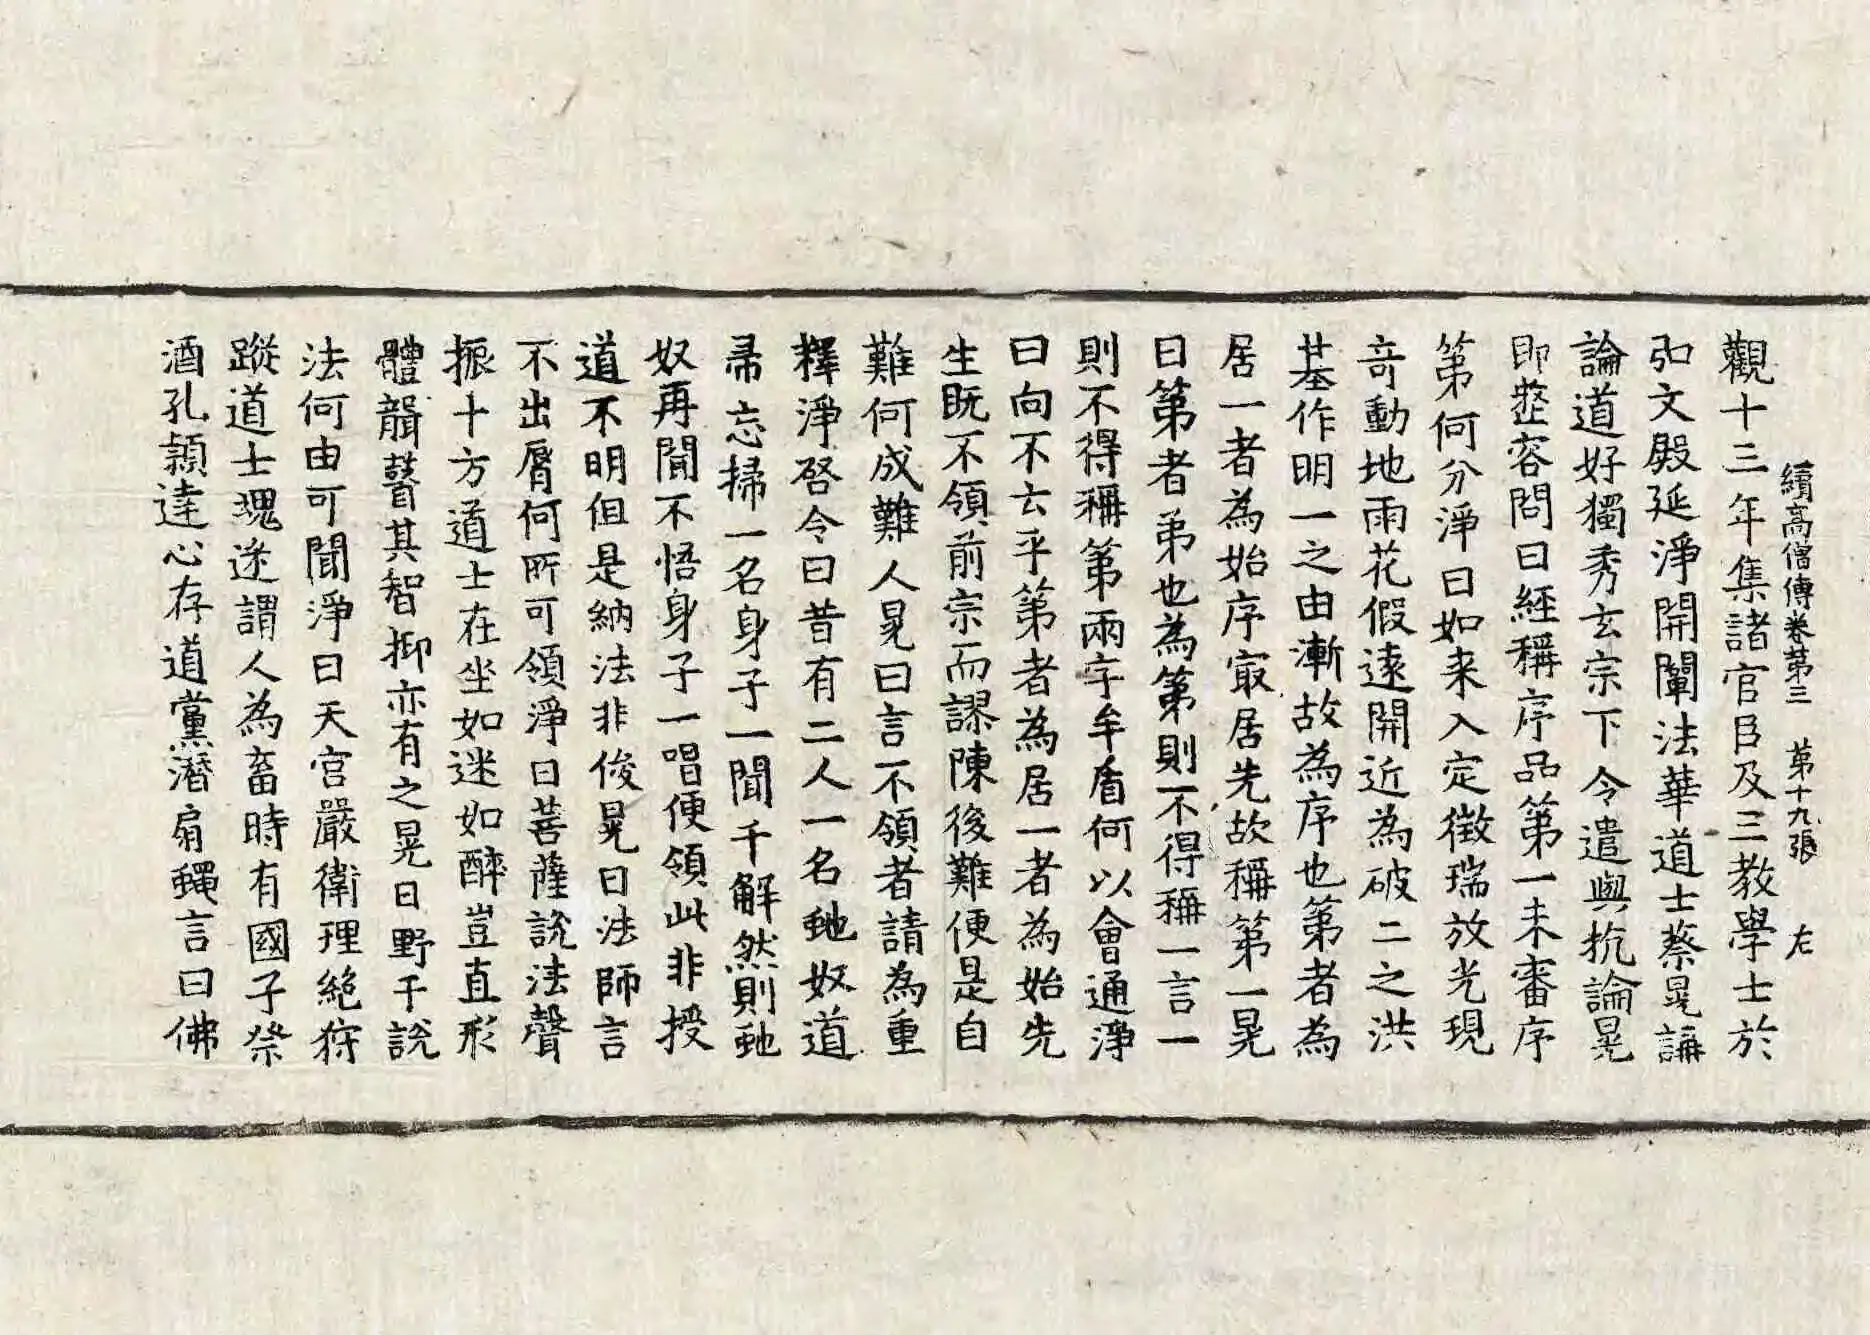 續高僧傳卷第三 第十九張 左
觀十三年集諸官臣及三教學士於
弘文殿延淨開闡法華道士蔡晃講
論道好獨秀玄宗下令遣與抗論晃
即整容問曰經稱序品第一未審序
第何分淨曰如来入定徵瑞放光現
竒動地雨花假遠開近為破二之洪
基作明一之由漸故為序也第者為
居一者為始序㝡居先故稱第一晃
曰第者弟也為第則不得稱一言一
則不得稱第兩字牟盾何以會通淨
曰向不云乎第者為居一者為始先
生既不領前宗而謬陳後難便是自
難何成難人晃曰言不領者請為重
釋淨啓令曰昔有二人一名虵奴道
帚忘掃一名身子一聞千解然則虵
奴再聞不悟身子一唱便領此非授
道不明但是納法非俊晃曰法師言
不出脣何所可領淨曰菩薩說法聲
振十方道士在坐如迷如醉豈直形
體聾瞽其智抑亦有之晃曰野干說
法何由可聞淨曰天宮嚴衛理絶狩
蹤道士䰟迷謂人為畜時有國子祭
酒孔穎達心存道黨潛扇蠅言曰佛